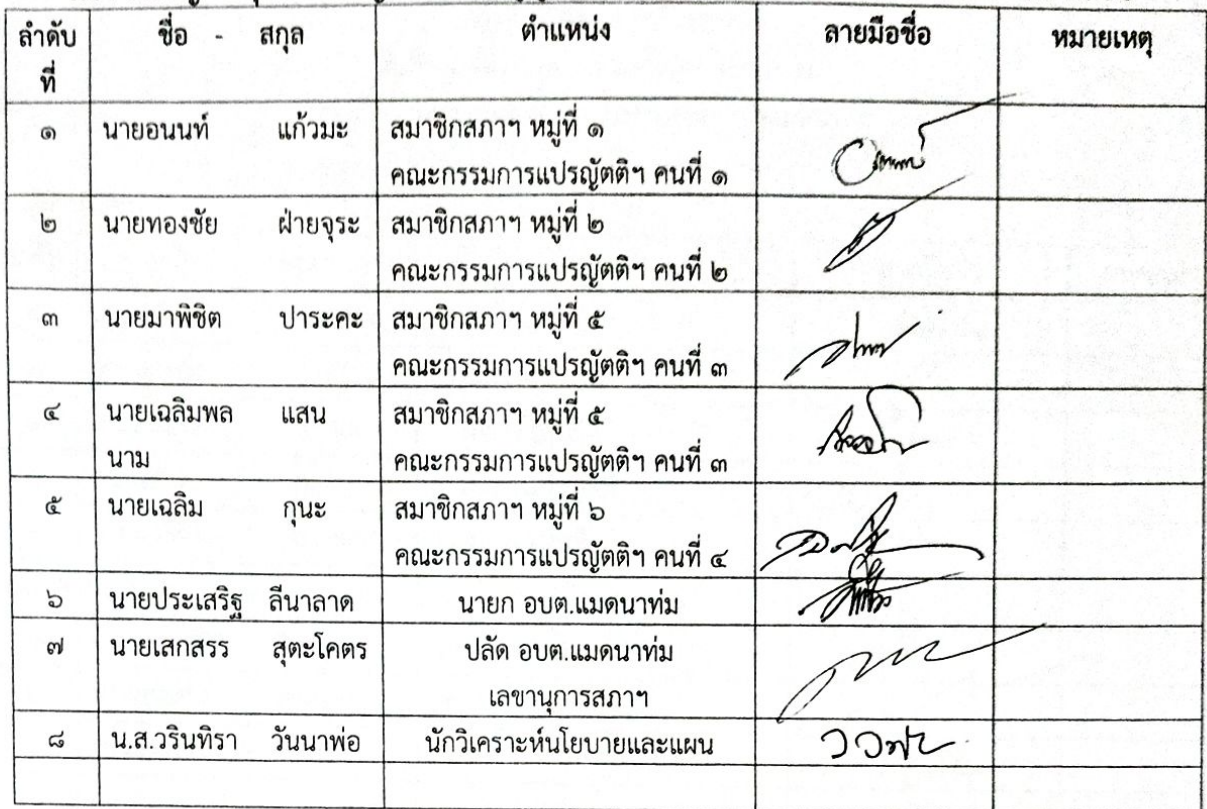 ลำดับ ชื่อ - สกุล ตำแหน่ง ลายมือชื่อ หมายเหตุ
ที่
๑ นายอนนท์ แก้วมะ สมาชิกสภาฯ หมู่ที่ ๑
คณะกรรมการแปรญัตติฯ คนที่ ๑
๒ นายทองชัย ฝ่ายจุระ สมาชิกสภาฯ หมู่ที่ ๒
คณะกรรมการแปรญัตติฯ คนที่ ๒
๓ นายมาพิชิต ปาระคะ สมาชิกสภาฯ หมู่ที่ ๕
คณะกรรมการแปรญัตติฯ คนที่ ๓
๔ นายเฉลิมพล แสน สมาชิกสภาฯ หมู่ที่ ๕
นาม คณะกรรมการแปรญัตติฯ คนที่ ๓
๕ นายเฉลิม กุนะ สมาชิกสภาฯ หมู่ที่ ๖
คณะกรรมการแปรญัตติฯ คนที่ ๔
๖ นายประเสริฐ ลีนาลาด นายก อบต.แมดนาท่ม
๗ นายเสกสรร สุตะโคตร ปลัด อบต.แมดนาท่ม
เลขานุการสภาฯ
๘ น.ส.วรินทิรา วันนาพ่อ นักวิเคราะห์นโยบายและแผน